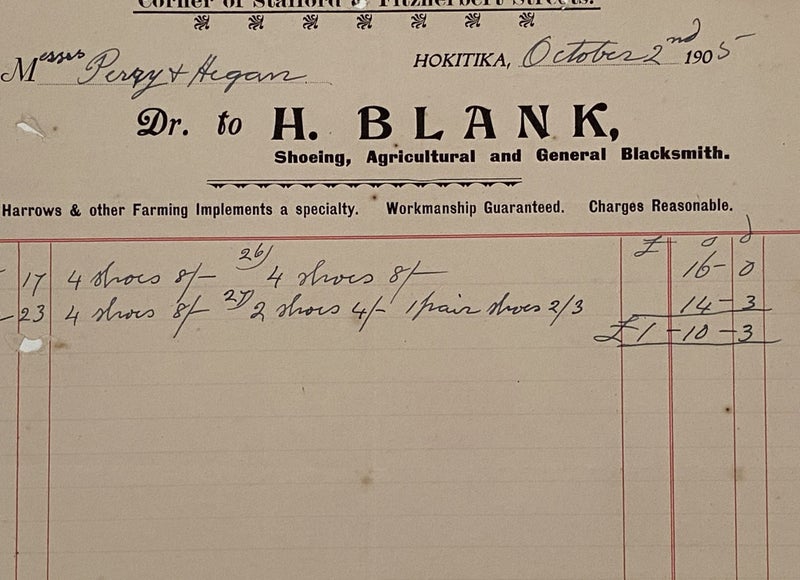 Corner of Stafford & Fitzherbert Streets.
Messrs Perry & Hegan HOKITIKA, October 2nd 1905
Dr. to H. BLANK,
Shoeing, Agricultural and General Blacksmith.
Harrows & other Farming Implements a specialty. Workmanship Guaranteed. Charges Reasonable.
£ s d
17 4 shoes 8/- 26) 4 shoes 8/- 16-0
23 4 shoes 8/- 27) 2 shoes 4/- 1 pair shoes 2/3 14-3
£1-10-3